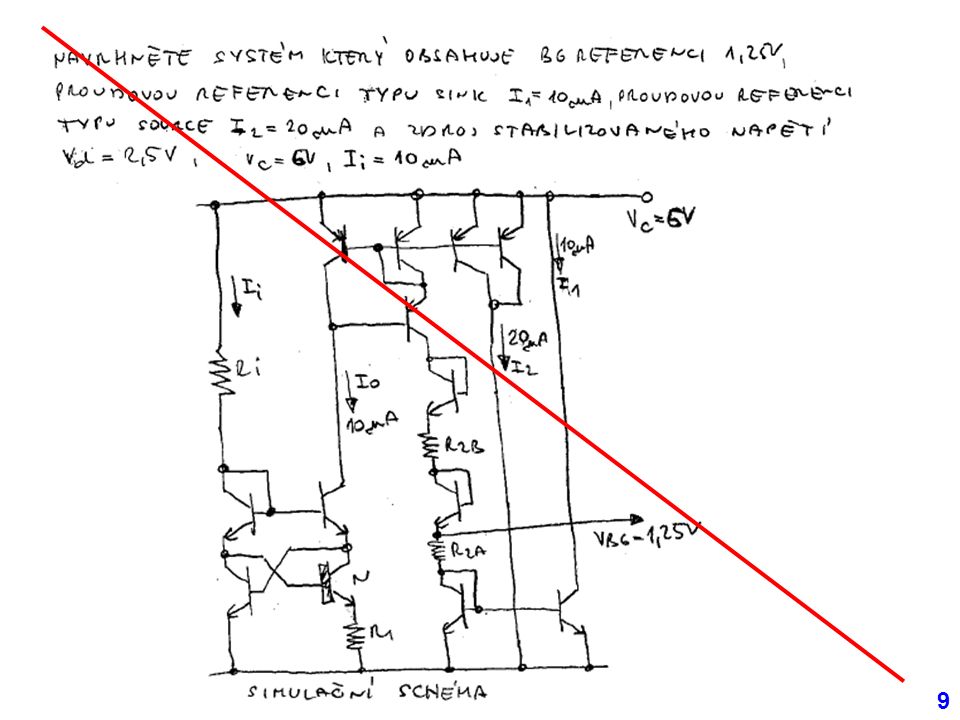 NAVRHNĚTE SYSTÉM KTERÝ OBSAHUJE BG REFERENCI 1,25V,
PROUDOVOU REFERENCI TYPU SINK I1=10µA, PROUDOVOU REFERENCI
TYPU SOURCE I2=20µA A ZDROJ STABILIZOVANÉHO NAPĚTÍ
Vd=2,5V, Vc=6V, Ii=10µA
Vc=6V
10µA
I1
Ii
20µA
I2
Ri
I0
10µA
R2B
VBG=1,25V
R2A
N
R1
SIMULAČNÍ SCHÉMA
9